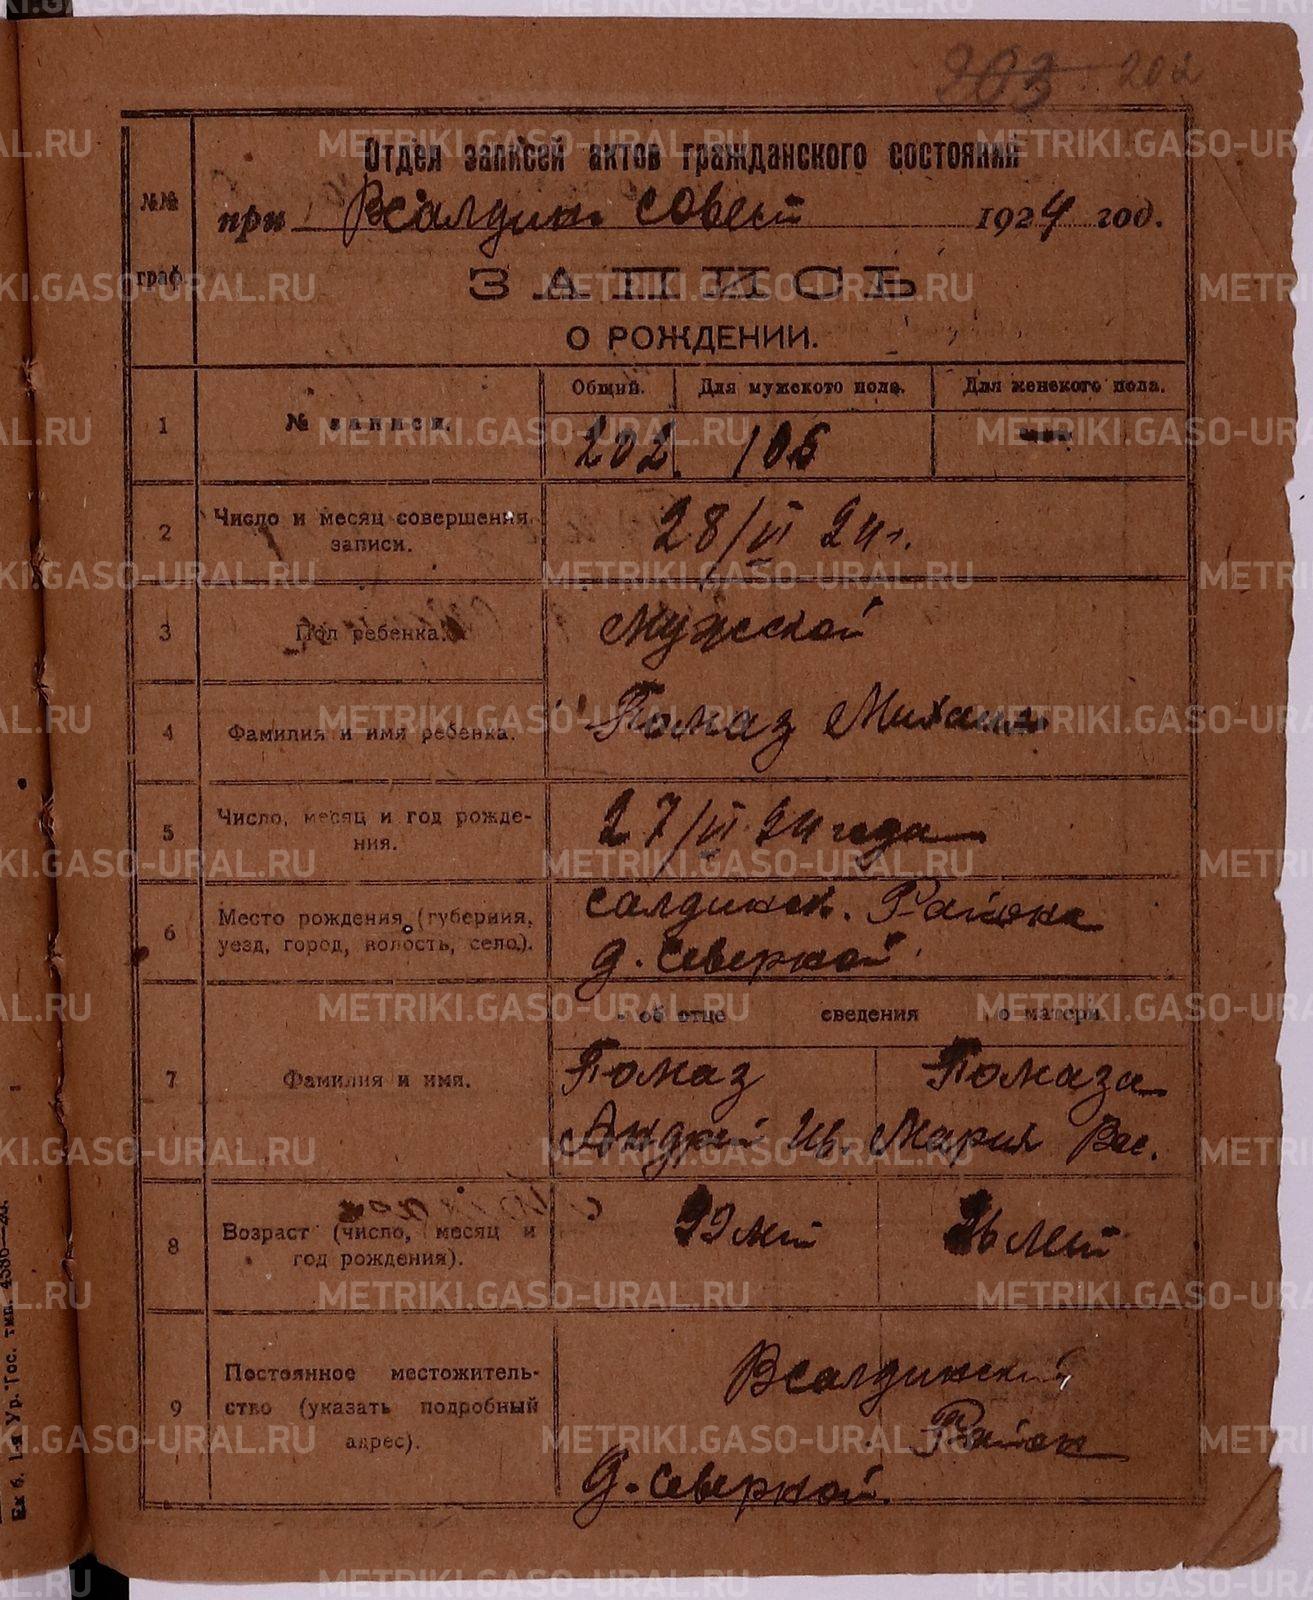 203 202
Отдел записей актов гражданского состояния
при Всалдин. совет 1924 год.
№№ граф.
ЗАПИСЬ
О РОЖДЕНИИ.
Общий. Для мужского пола. Для женского пола.
1 № записи. 202. 105 —
2 Число и месяц совершения 28/VI 24 г.
записи.
3 Пол ребенка. Мужской
4 Фамилия и имя ребенка. Помаз Михаил
5 Число, месяц и год рожде- 27/VI 24 года
ния.
6 Место рождения (губерния, салдинск. Района
уезд, город, волость, село). д. Северной
об отце сведения о матери
7 Фамилия и имя. Помаз Помаза
Андрей Ив. Мария Вас.
8 Возраст (число, месяц и 29 лет 26 лет
год рождения).
9 Постоянное местожитель- Всалдинский
ство (указать подробный Район
адрес). д. Северной.
Ек б. 1-я Ур. Гос. тип.
METRIKI.GASO-URAL.RU